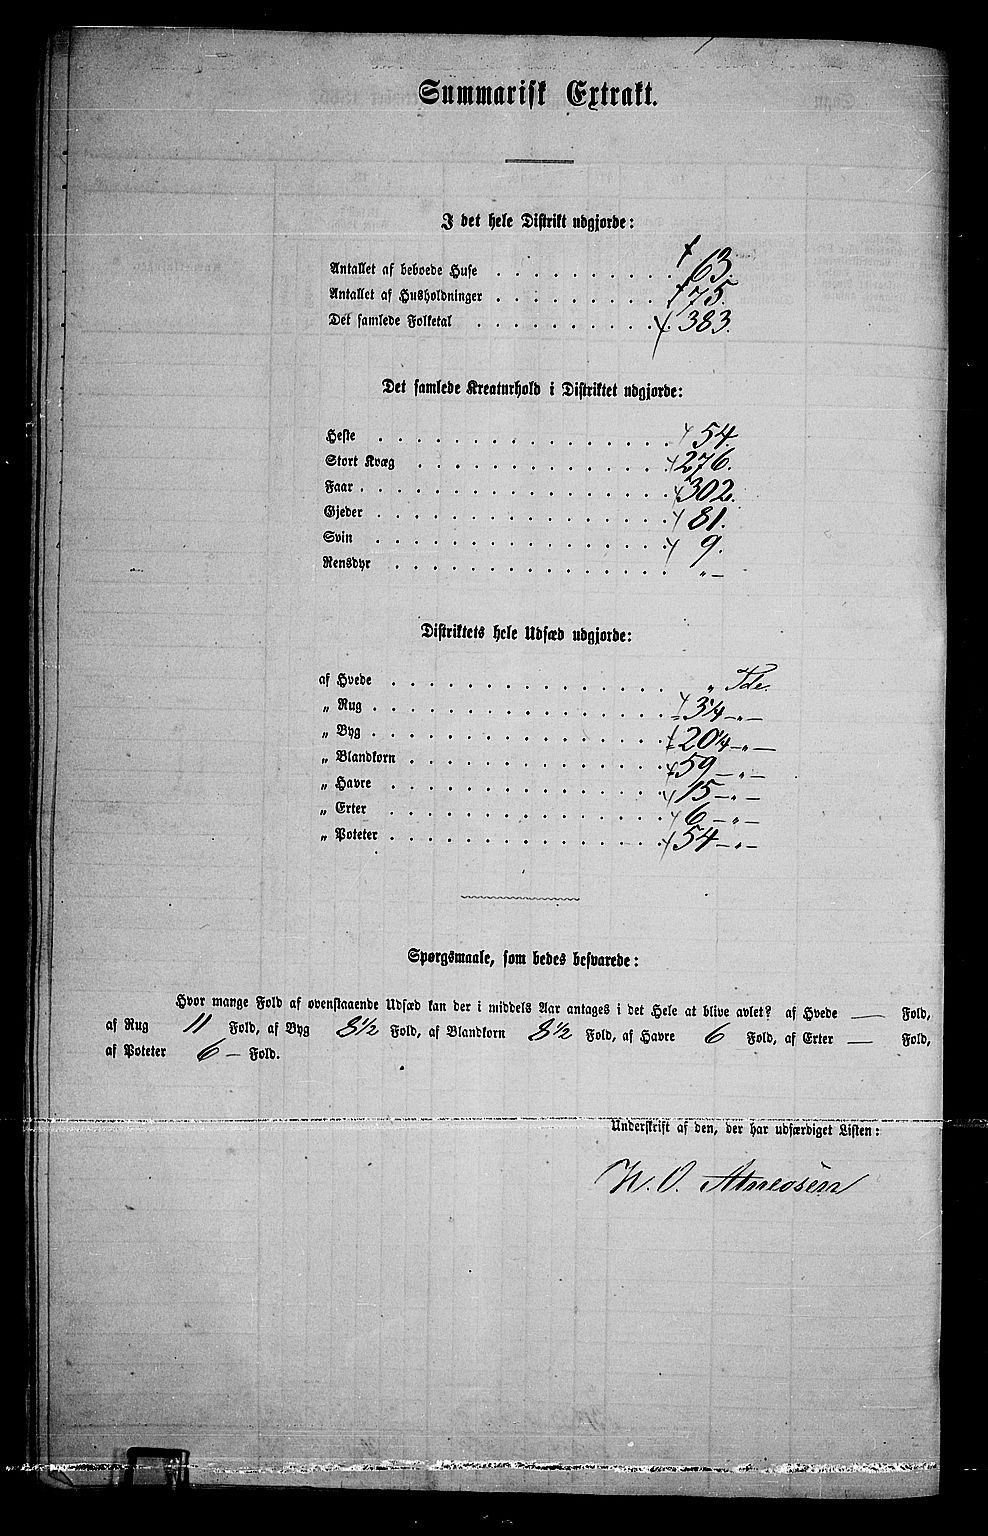 Summarisk Extrakt.
I det hele Distrikt udgjorde:
Antallet af beboede Huse . . . . . . . . . . 63.
Antallet af Husholdninger . . . . . . . . . . 75.
Det samlede Folketal . . . . . . . . . . . 383.
Det samlede Kreaturhold i Distriktet udgjorde:
Heste . . . . . . . . . . . . . . . . 54.
Stort Kvæg . . . . . . . . . . . . . . 276.
Faar . . . . . . . . . . . . . . . . . 302.
Gjeder . . . . . . . . . . . . . . . . 81.
Svin . . . . . . . . . . . . . . . . 9.
Rensdyr . . . . . . . . . . . . . . . „—
Distriktets hele Udsæd udgjorde:
af Hvede . . . . . . . . . . . . . . . „ Tde.
„ Rug . . . . . . . . . . . . . . . . —„—
„ Byg . . . . . . . . . . . . . . . . —„—
„ Blandkorn . . . . . . . . . . . . . . 59 —„—
„ Havre . . . . . . . . . . . . . . . 15 —„—
„ Erter . . . . . . . . . . . . . . . 6 —„—
„ Poteter . . . . . . . . . . . . . . . 54 —„—
Spørgsmaale, som bedes besvarede:
Hvor mange Fold af ovenstaaende Udsæd kan der i middels Aar antages i det Hele at blive avlet? af Hvede — Fold,
af Rug 11 Fold, af Byg 8½ Fold, af Blandkorn 8½ Fold, af Havre 6 Fold, af Erter — Fold,
af Poteter 6 — Fold.
Underskrift af den, der har udfærdiget Listen:
O.